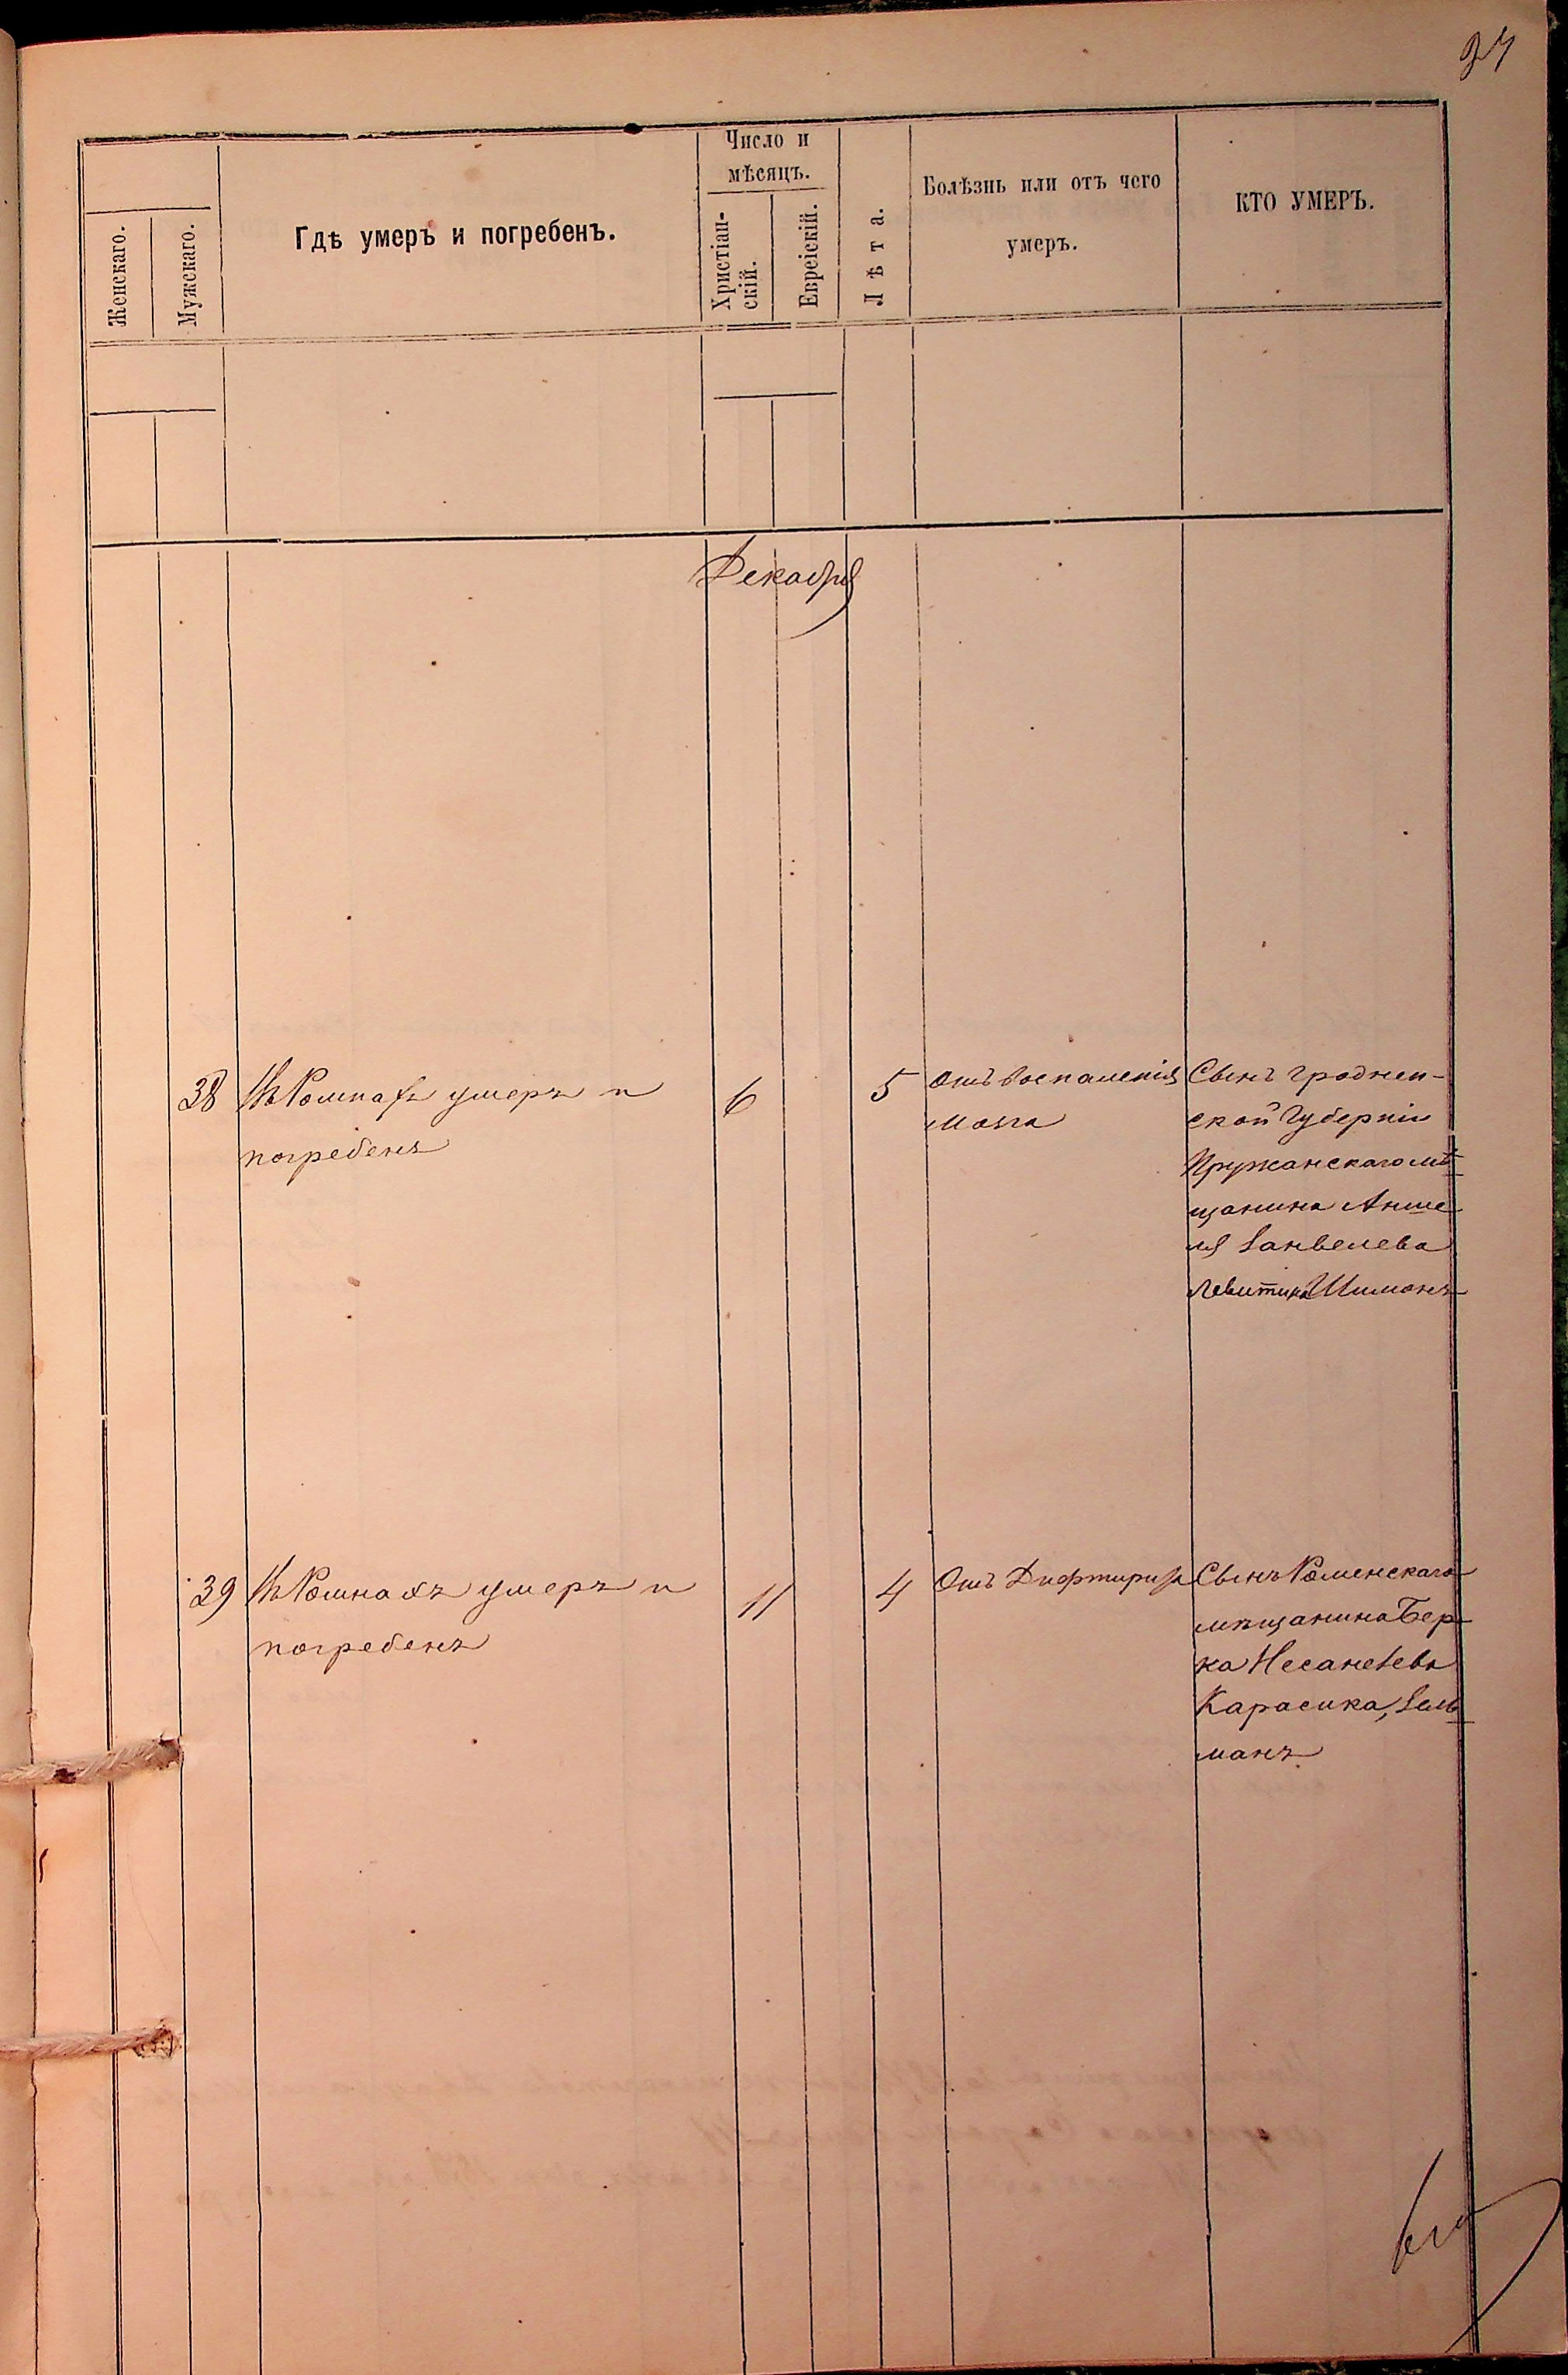 37
Женскаго.
Мужскаго.
Гдѣ умеръ и погребенъ.
Число и
мѣсяцъ.
Христіан-
скій.
Еврейскій.
Лѣта.
Болѣзнь или отъ чего
умеръ.
КТО УМЕРЪ.
Декабря
38 Въ Ромнахъ умеръ и 6 5 Отъ воспаленія Сынъ Гроднен-
погребенъ мозга ской Губерніи
Пружанскаго мѣ
щанина Анше
ля Занвелева
Левитина Шимонъ
39 Въ Ромнахъ умеръ и 11 4 Отъ Дифтирита Сынъ Роменскаго
погребенъ мѣщанина Бер
ка Несанелева
Карасика, Зель
манъ